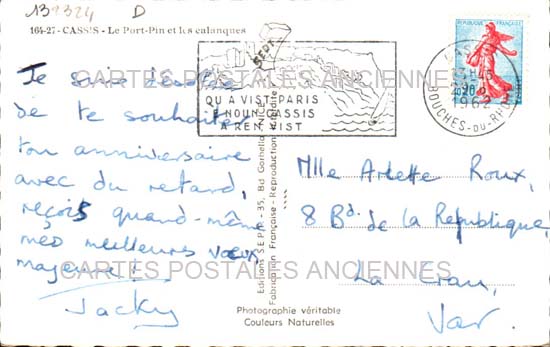 132324 D
164-27 - CASSIS - Le Port-Pin et les calanques
SEPT
QU A VIST PARIS
E NOUN CASSIS
A REN VIST
RÉPUBLIQUE FRANÇAISE
CASSIS
1962
BOUCHES-DU-RHÔNE
Je suis désolée
de te souhaiter
ton anniversaire
avec du retard,
reçois quand-même
mes meilleures vœux,
majeure!
Jacky
Mlle Arlette Roux,
8 Bd. de la République,
La Crau,
Var.
Editions SEPR - 35, Bd Gorbella, NICE
Fabrication Française - Reproduction interdite
Photographie véritable
Couleurs Naturelles
CARTES POSTALES ANCIENNES
CARTES POSTALES ANCIENNES